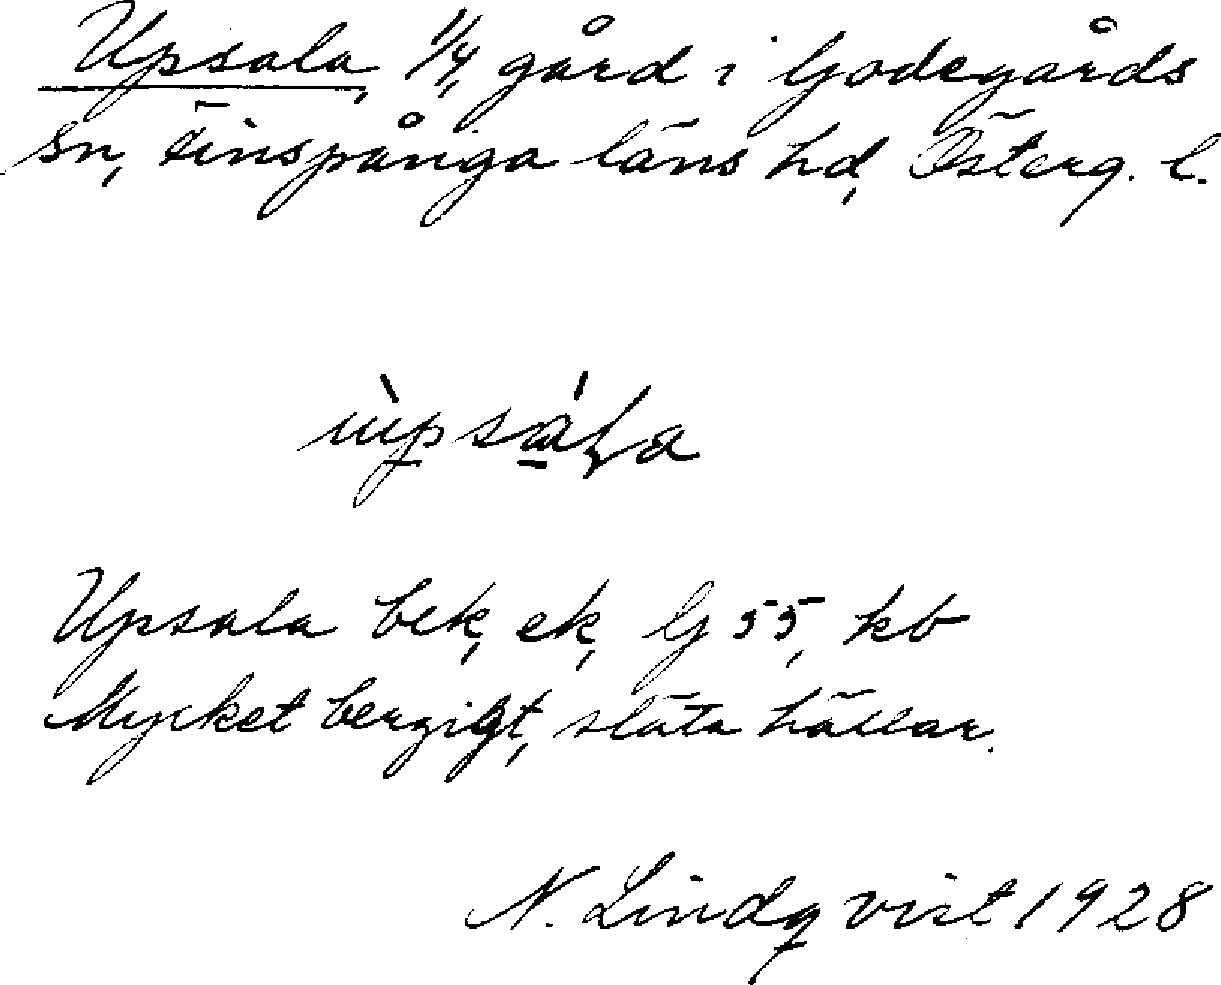 Upsala, 1/4, gård i Godegårds
sn, Finspånga läns hd, Österg. l.
ùpsá̱ła
Upsala bek, ek, G 55, kb
Mycket bergigt, släta hällar.
N. Lindqvist 1928